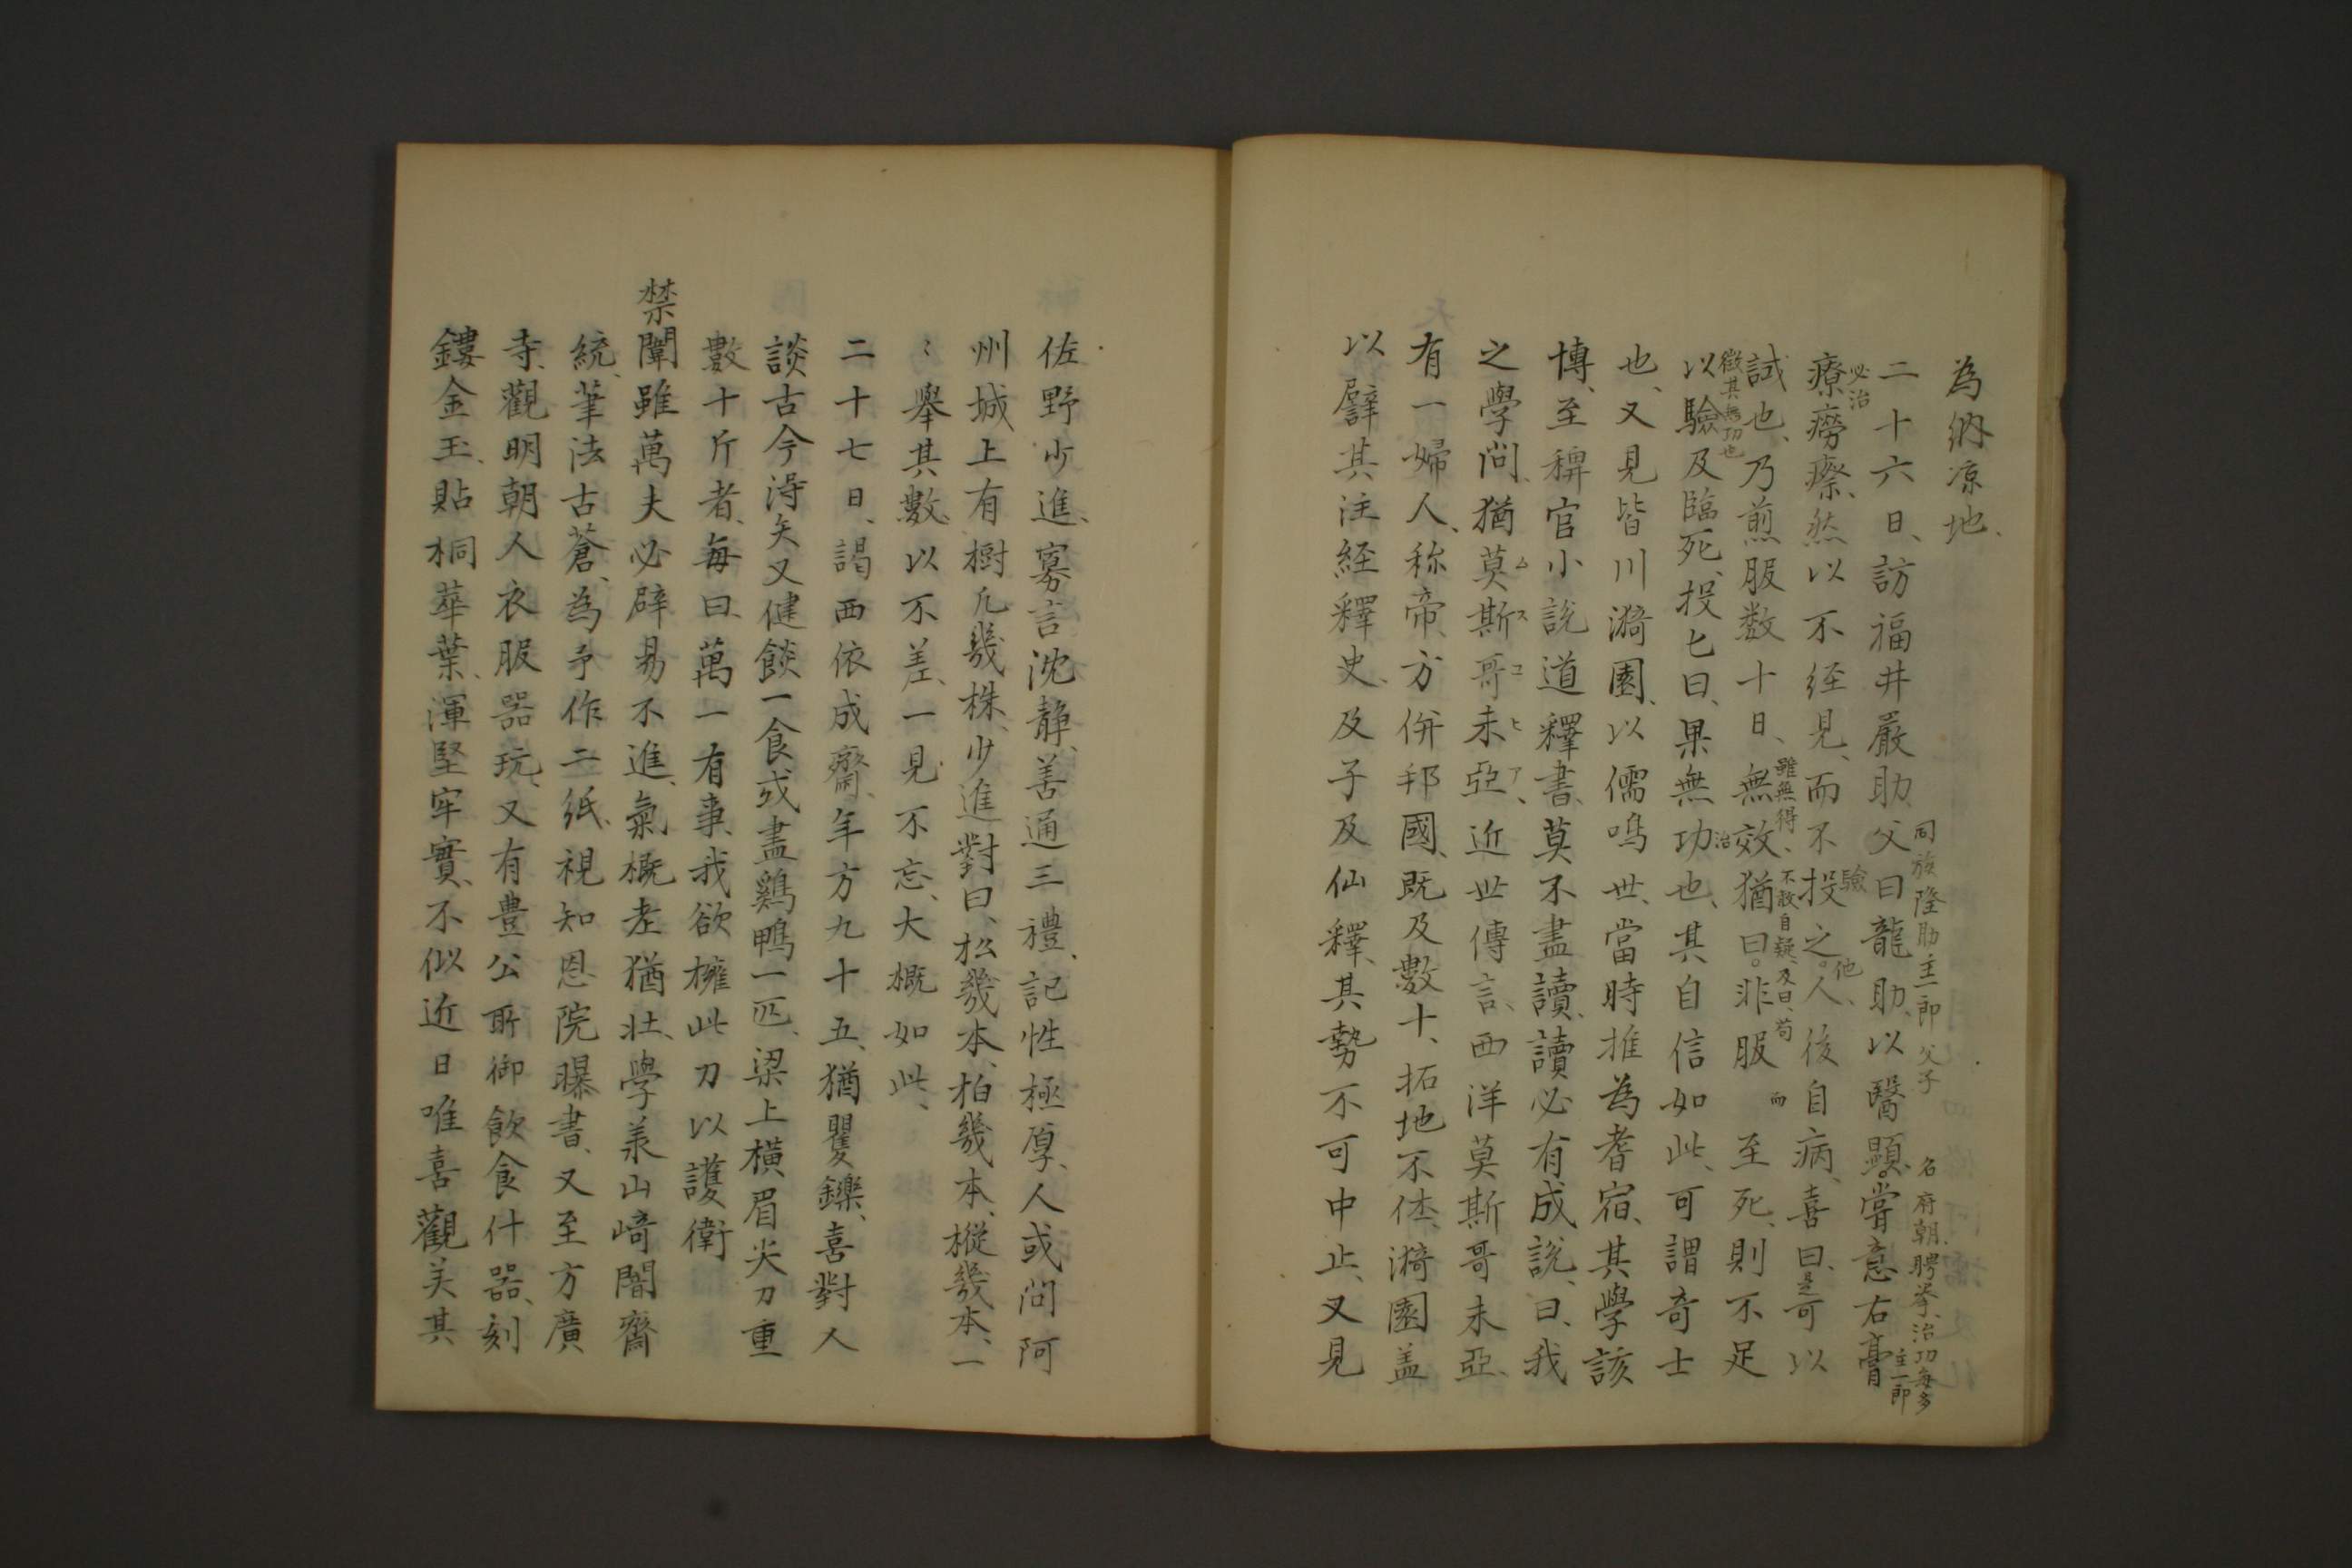 為納凉地、
同族隆助主一郎父子 名府朝、聘挙、治功每多 主一郎
二十六日、訪福井嚴助、父曰龍助、以醫顯。嘗意右膏
必治 驗 他、
療癆瘵、然以不経見、而不投之。人後自病、喜曰、是可以
雖無得、不敢自疑、及曰、苟 而
試也、乃煎服数十日、無效猶曰。非服至死、則不足
徵其無功也 治
以驗及臨死、投匕曰、果無功也、其自信如此、可謂奇士
也、又見皆川漪園、以儒鳴世、當時推為耆宿、其學該
博、至稗官小說道釋書、莫不盡讀、讀必有成說、曰、我
之學問、猶莫斯哥未亞、近世傳言、西洋莫斯哥未亞、
ムスコヒア
有一婦人、称帝、方併邦國、既及數十、拓地不休、漪園盖
以譬其注経釋史、及子及仙釋、其勢不可中止、又見
佐野少進、寡言沈静、善通三禮、記性極厚、人或問阿
州城上有樹凡幾株、少進對曰、松幾本、柏幾本、樅幾本、一
〻舉其數、以不差、一見不忘、大概如此、
二十七日、謁西依成齋、年方九十五、猶矍鑠、喜對人
談古今淂失又健餤一食或盡鷄鴨一匹、梁上橫眉尖刀重
數十斤者、每曰、萬一有事、我欲擁此刀以護衛
禁闈雖萬夫必辟易不進、氣概老猶壮、學羕山崎闇齋
統、筆法古蒼、為予作二紙、視知恩院曝書、又至方廣
寺、觀明朝人衣服器玩、又有豊公所御飲食什器、刻
鏤金玉、貼桐華葉、渾堅牢實、不似近日唯喜觀美其